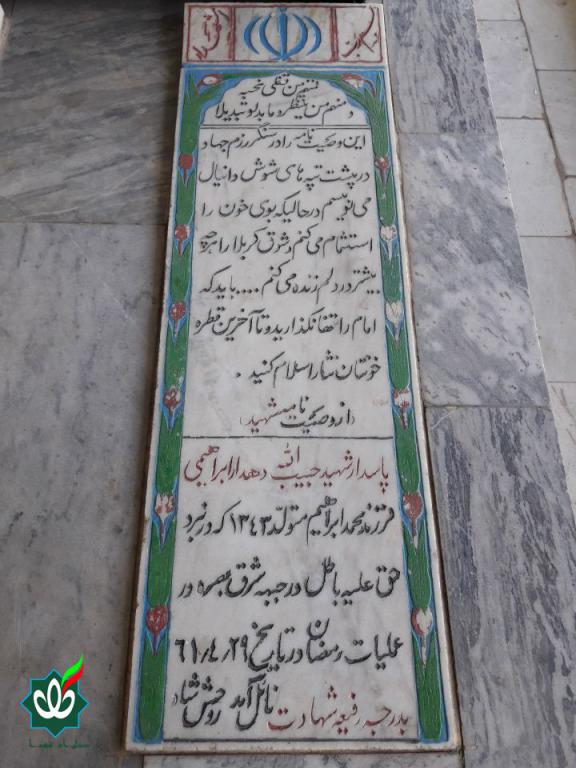 الله اکبر
فمنهم من قضی نحبه
و منهم من ینتظر و ما بدلو تبدیلا
این وصیت نامه را در سنگر رزم جهاد
در پشت تپه های شوش دانیال
می نویسم در حالیکه بوی خون را
استشمام می کنم و شوق کربلا را هر چه
بیشتر در دلم زنده می کنم .... باید که
امام را تنها نگذارید و تا آخرین قطره
خونتان نثار اسلام کنید .
(از وصیت نامه شهید)
پاسدار شهید حبیب الله دهدار ابراهیمی
فرزند محمد ابراهیم متولد ۱۳۴۳ که در نبرد
حق علیه باطل در جبهه شرق بصره در
عملیات رمضان در تاریخ ۶۱/۴/۲۹
بدرجه رفیعه شهادت نائل آمد روحش شاد